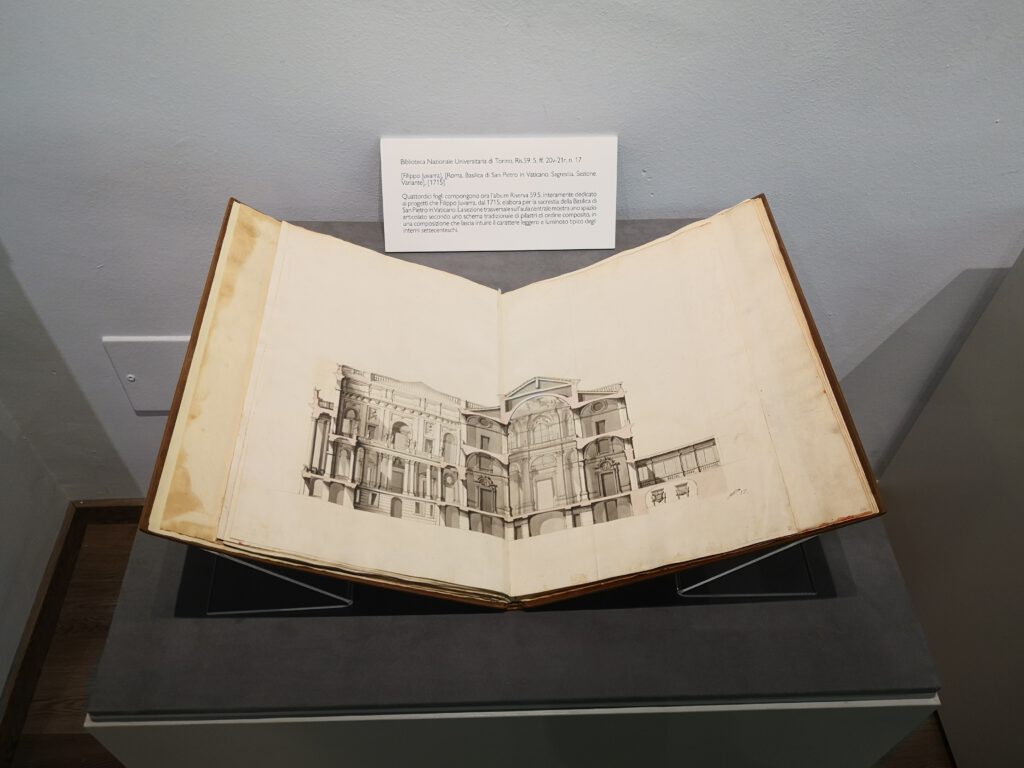 Biblioteca Nazionale Universitaria di Torino, Ris.59. 5, ff. 20v-21r, n. 17
[Filippo Juvarra], [Roma, Basilica di San Pietro in Vaticano. Sagrestia. Sezione.
Variante], [1715]
Quattordici fogli compongono ora l'album Riserva 59.5, interamente dedicato
ai progetti che Filippo Juvarra, dal 1715, elabora per la sacrestia della Basilica di
San Pietro in Vaticano. La sezione trasversale sull'aula centrale mostra uno spazio
articolato secondo uno schema tradizionale di pilastri di ordine composito, in
una composizione che lascia intuire il carattere leggero e luminoso tipico degli
interni settecenteschi.